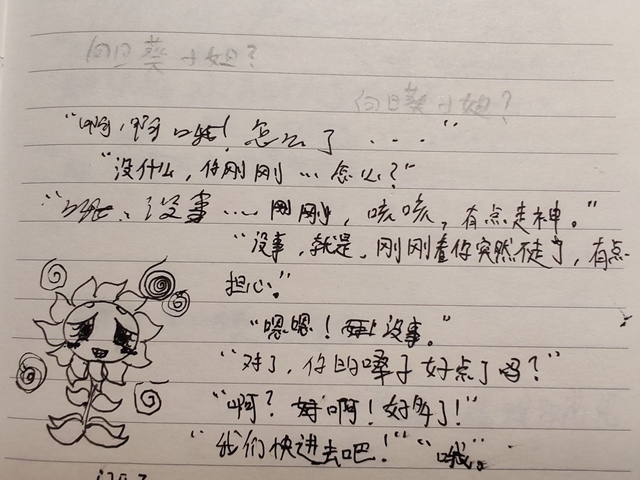 向日葵小姐?
向日葵小姐?
“啊,啊哦!怎么了...”
“没什么,你刚刚...怎么?”
“呃、没事....刚刚,咳咳,有点走神。”
“没事,就是,刚刚看你突然不走了,有点
担心。”
“嗯嗯!没事。”
“对了,你的嗓子好点了吗?”
“啊?好啊!好多了!”
“我们快进去吧!”“哦。”